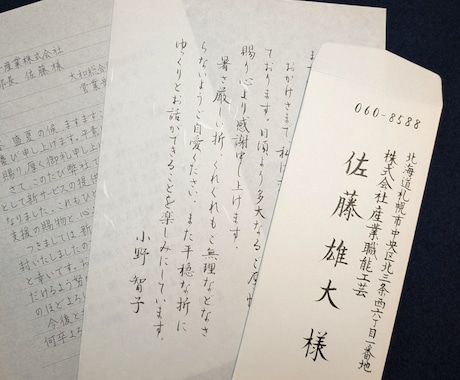 産業株式会社
部長 佐藤 様
大和総合
営業
盛夏の候、ますます
慶び申し上げます。平素
賜り、厚く御礼申し上げ
さて、このたび弊社で
として新サービスの提供
なりました。これもひ
支援の賜物と、心
つきましては、新
封いたしましたの
と幸いです。
だけるよう努
のほどよろ
今後と
何卒よろ
おかげさまで私
ております。日頃より多大なるご厚情
賜り心より感謝申し上げます。
暑さ厳しい折、くれぐれもご無理などなさ
らないようご自愛ください。また平穏な折に
ゆっくりとお話ができることを楽しみにしています。
小野智子
060-8588
北海道札幌市中央区北三条西六丁目一番地
株式会社産業職能工芸
佐藤雄大様